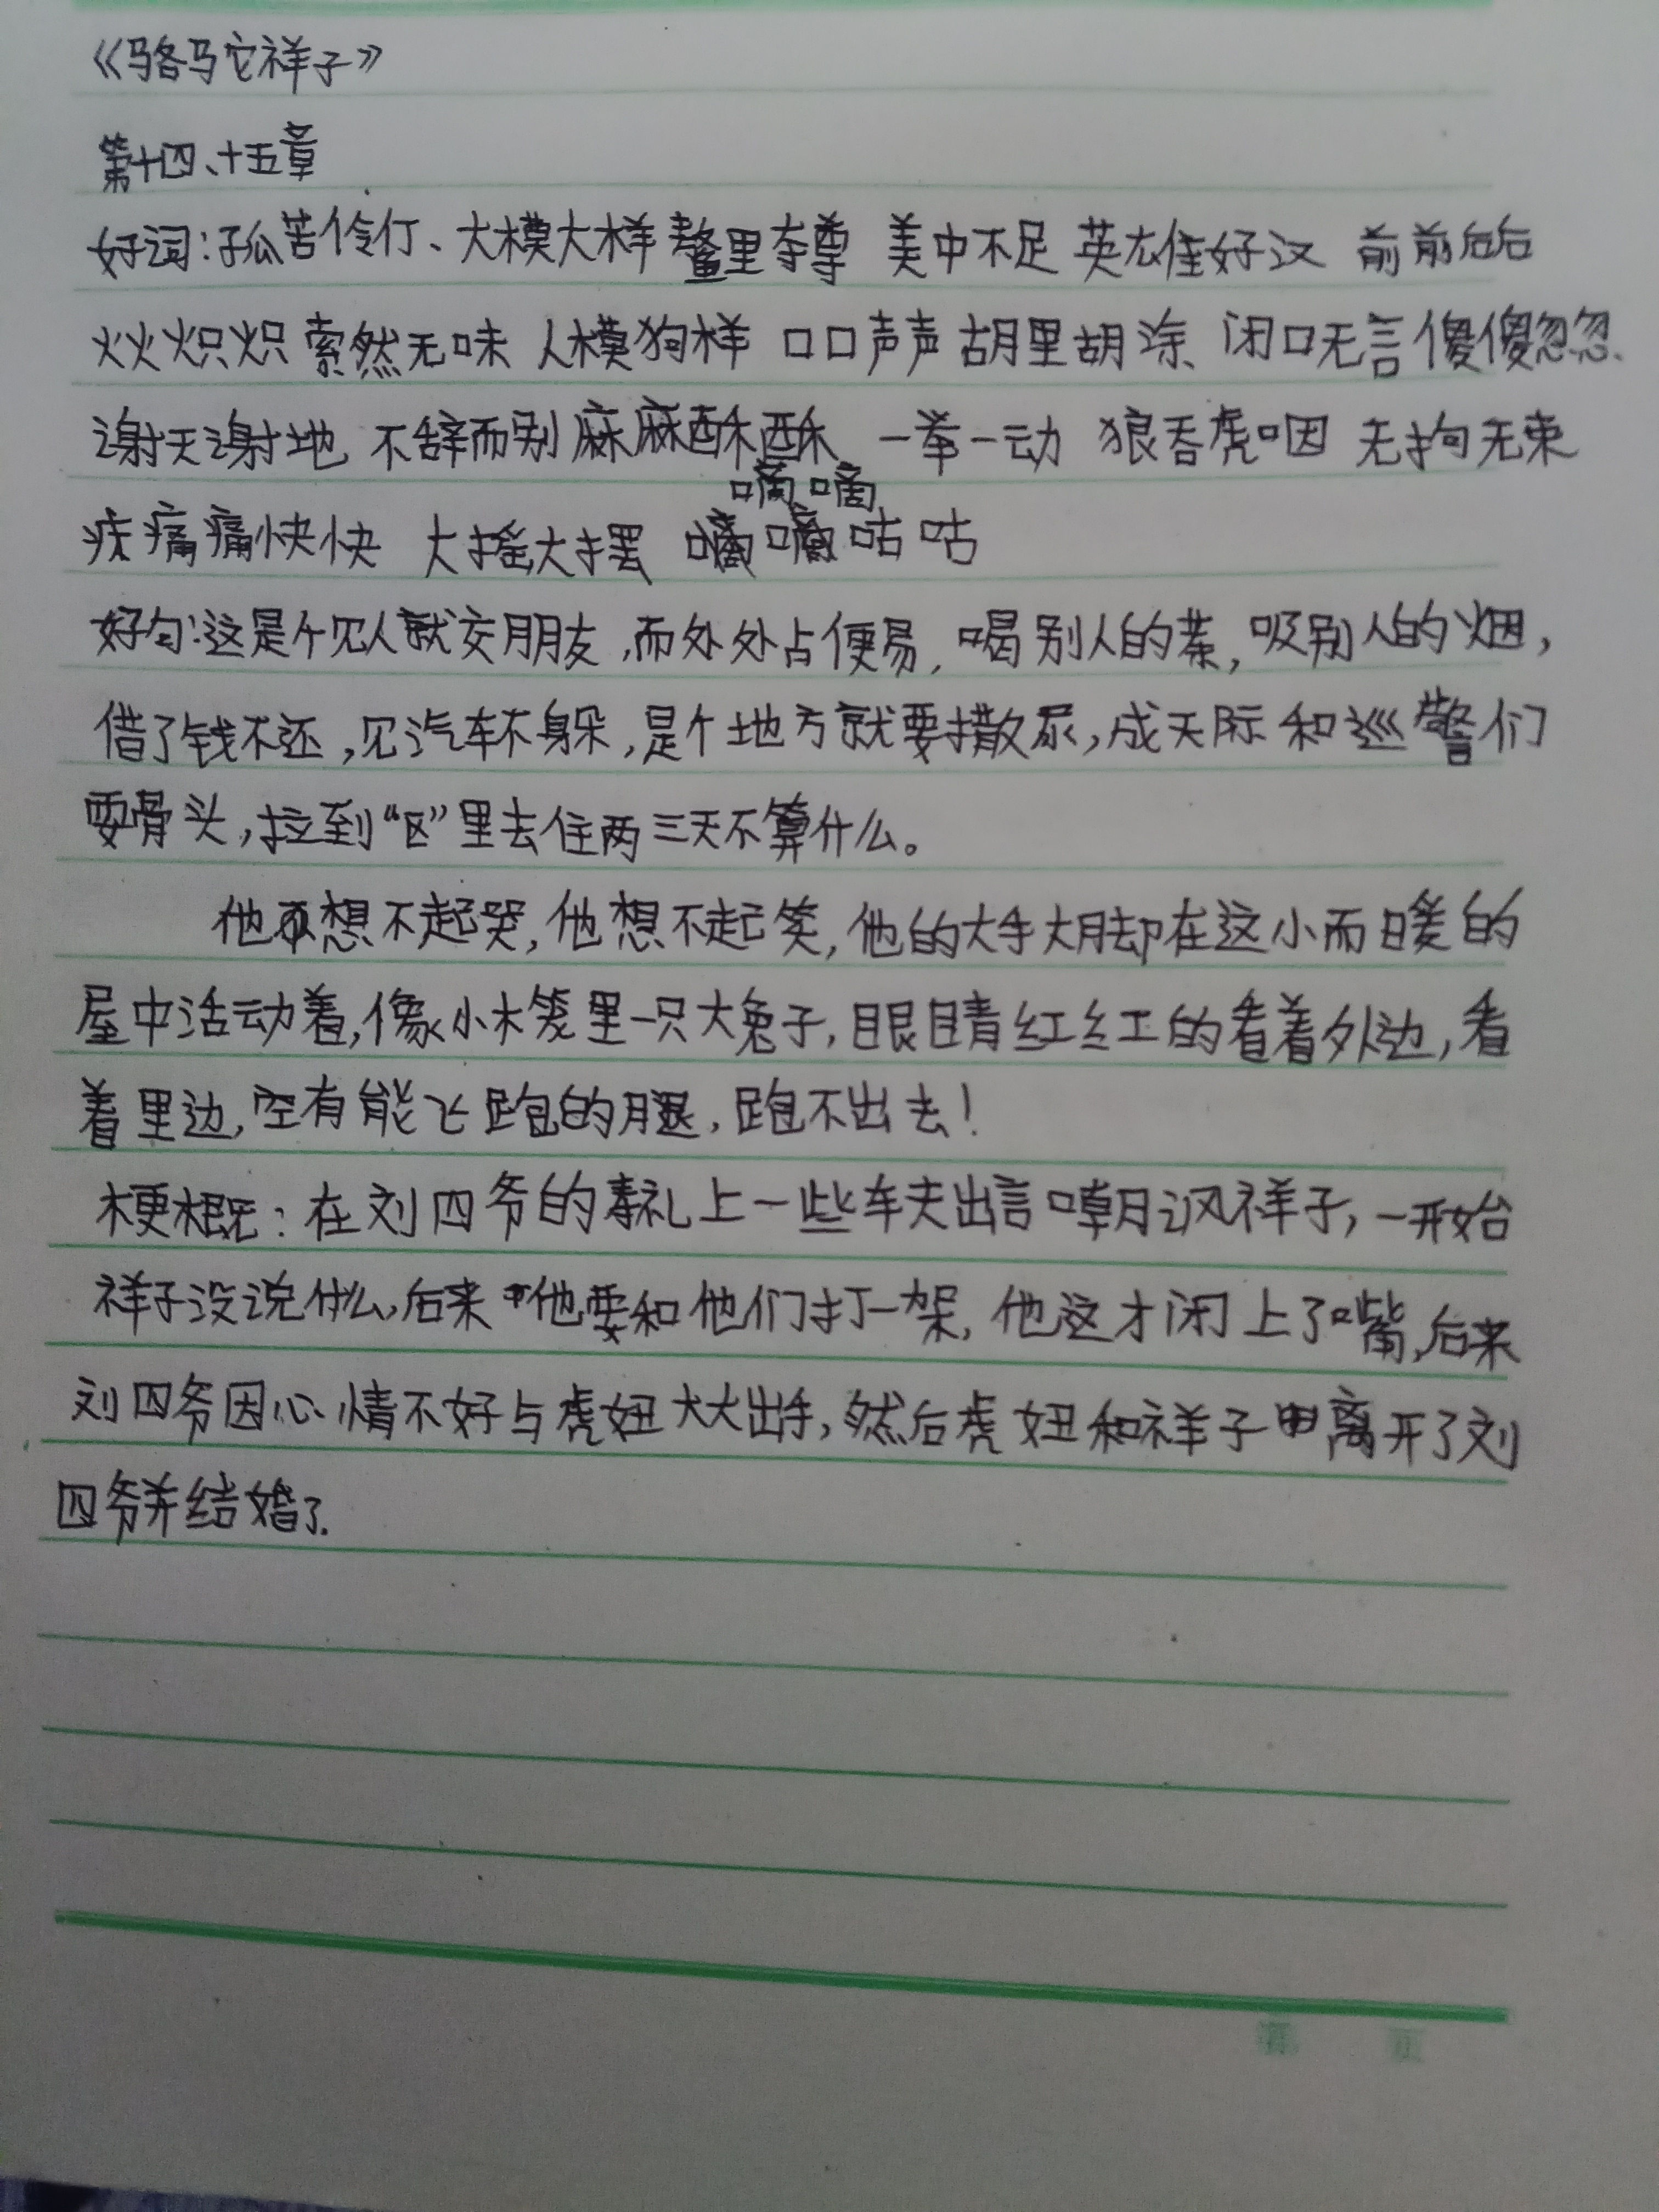 《骆马它祥子》
第十四、十五章
好词:孤苦伶仃、大模大样 鳌里夺尊 美中不足 英雄好汉 前前后后
火火炽炽 索然无味 人模狗样 口口声声 胡里胡涂、闭口无言 傻傻忽忽、
谢天谢地 不辞而别 麻麻酥酥、一举一动 狼吞虎咽 无拘无束
嘀嘀
痛痛快快 大摇大摆 咕咕
好句:这是个见人就交朋友,而处处占便易,喝别人的茶,吸别人的烟,
借了钱不还,见汽车不躲,是个地方就要撒尿,成天际和巡警们
耍骨头,拉到“区”里去住两三天不算什么。
他想不起哭,他想不起笑,他的大手大脚在这小而暖的
屋中活动着,像小木笼里一只大兔子,眼睛红红的看着外边,看
着里边,空有能飞跑的腿,跑不出去!
梗概:在刘四爷的寿礼上一些车夫出言嘲讽祥子,一开始
祥子没说什么,后来他要和他们打一架,他这才闭上了嘴,后来
刘四爷因心情不好与虎妞大大出手,然后虎妞和祥子离开了刘
四爷并结婚了.